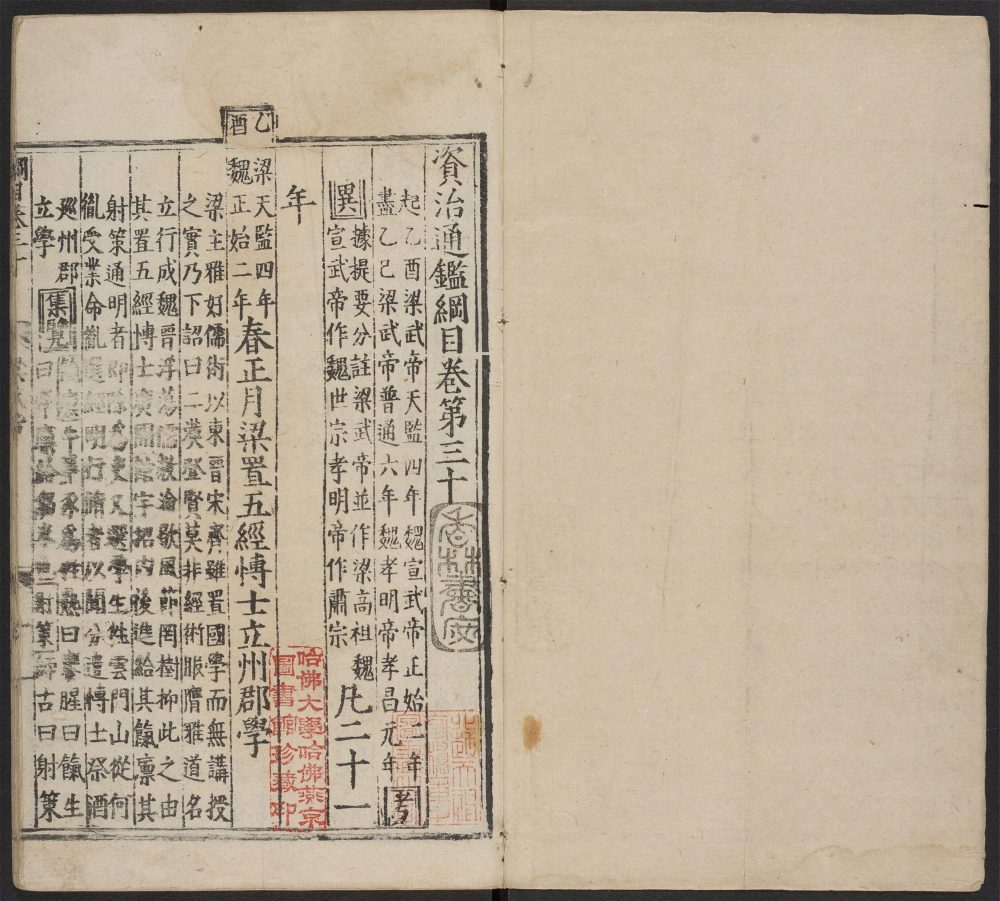 資治通鑑綱目卷第三十
起乙酉梁武帝天監四年魏宣武帝正始二年
盡乙巳梁武帝普通六年魏孝明帝孝昌元年
凡二十一年
考異
據提要分註梁武帝並作梁高祖魏
宣武帝作魏世宗孝明帝作肅宗
乙酉
梁天監四年
魏正始二年
春正月梁置五經博士立州郡學
梁主雅好儒術以東晉宋齊雖置國學而無講授
之實乃下詔曰二漢登賢莫非經術服膺雅道名
立行成魏晉浮蕩儒教淪歇風節罔樹抑此之由
其置五經博士廣開館宇招內後進給其餼廩其
射策通明者即除為吏又選學生往雲門山從何
胤受業命胤選經明行脩者以聞分遣博士祭酒
廵州郡
立學
集覽
曰餼生
古曰射策
綱目卷三十
香林書屋
哈佛大學哈佛燕京
圖書館珍藏印